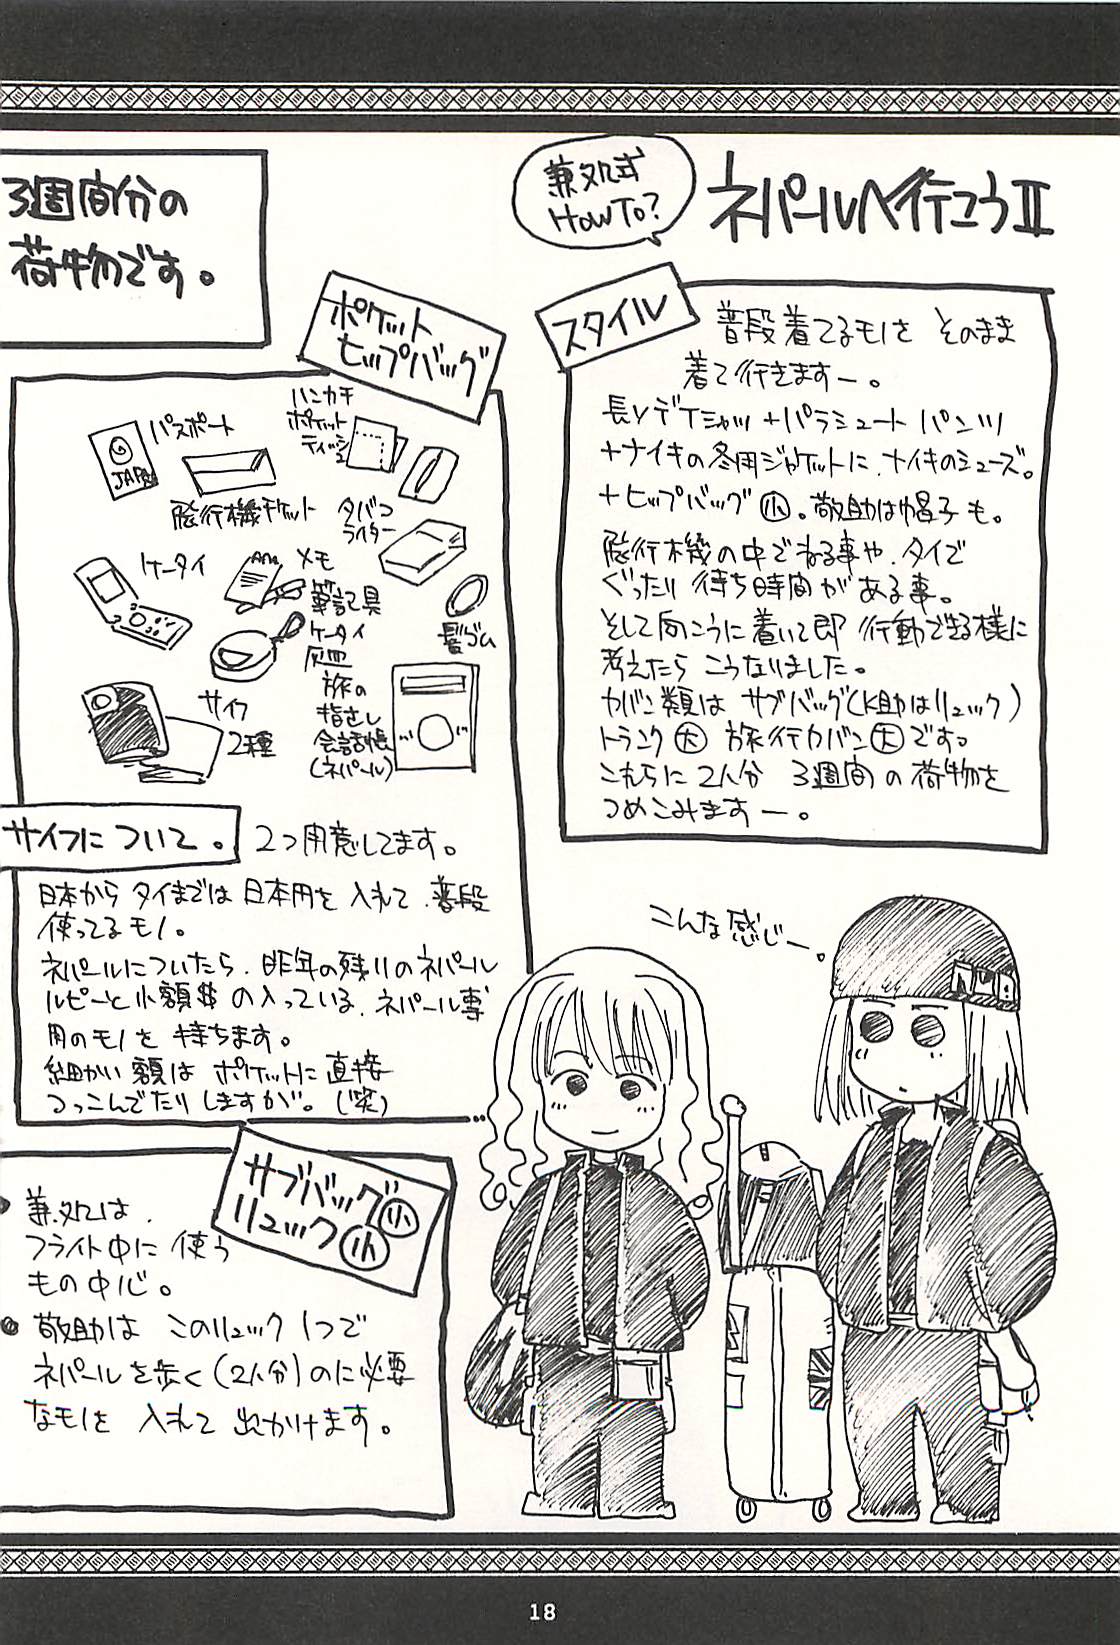 ネパールへ行こうⅡ
兼処式
HOWTO?
3週間分の
荷物です。
スタイル
普段着てるモノを そのまま
着て行きますー。
長Yデケシャツ+パラシュート パンツ
+ナイキの冬用ジャケットに、ナイキのシューズ。
+ヒップバッグ小。敬助は帽子も。
飛行機の中でねる事や、タイで
ぐったり待ち時間がある事。
そして向こうに着いて即 行動できる様に
考えたら こうなりました。
カバン類は サブバッグ(K助はリュック)
トランク大 旅行カバン大です。
これらに2人分 3週間の荷物を
つめこみますー。
ポケット
ヒップバッグ
パスポート
JAPA
飛行機チケット
ハンカチ
ポケット
ティッシュ
タバコ
ライター
ケータイ
メモ
筆記具
ケータイ
灰皿
髪ゴム
サイフ
2種
旅の
指さし
会話帳
(ネパール)
サイフについて。
2つ用意してます。
日本から タイまでは 日本円を 入れて、普段
使ってるモノ。
ネパールについたら、昨年の残りのネパール
ルピーと小額$の入っている、ネパール専
用のモノを 持ちます。
細かい額は ポケットに直接
つっこんでたりしますが。(笑)
サブバッグ小
リュック小
兼処は、
フライト中に 使う
もの中心。
敬助は このリュック1つで
ネパールを歩く(2人分)のに必要
なモノを 入れて 出かけます。
こんな感じー。
18